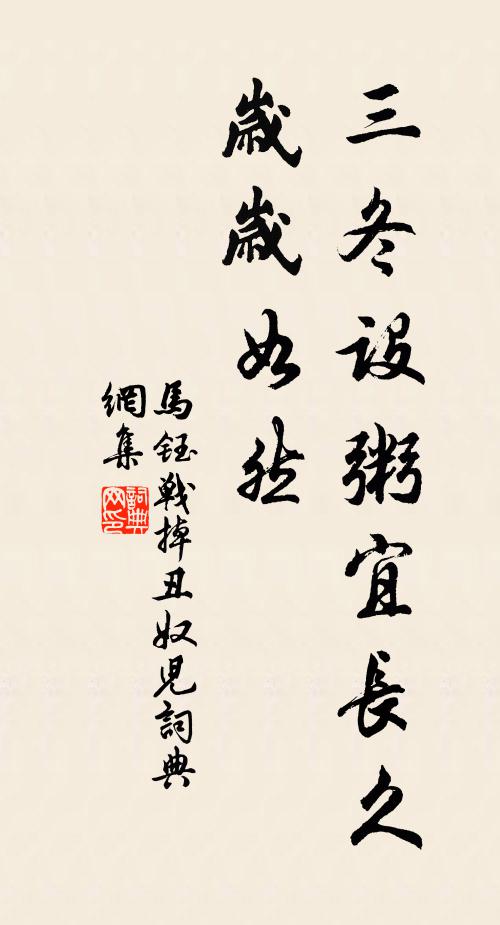 三冬設粥宜長久
歲歲如然
馬鈺戰掉丑奴兒詞典
網集
詞典網印